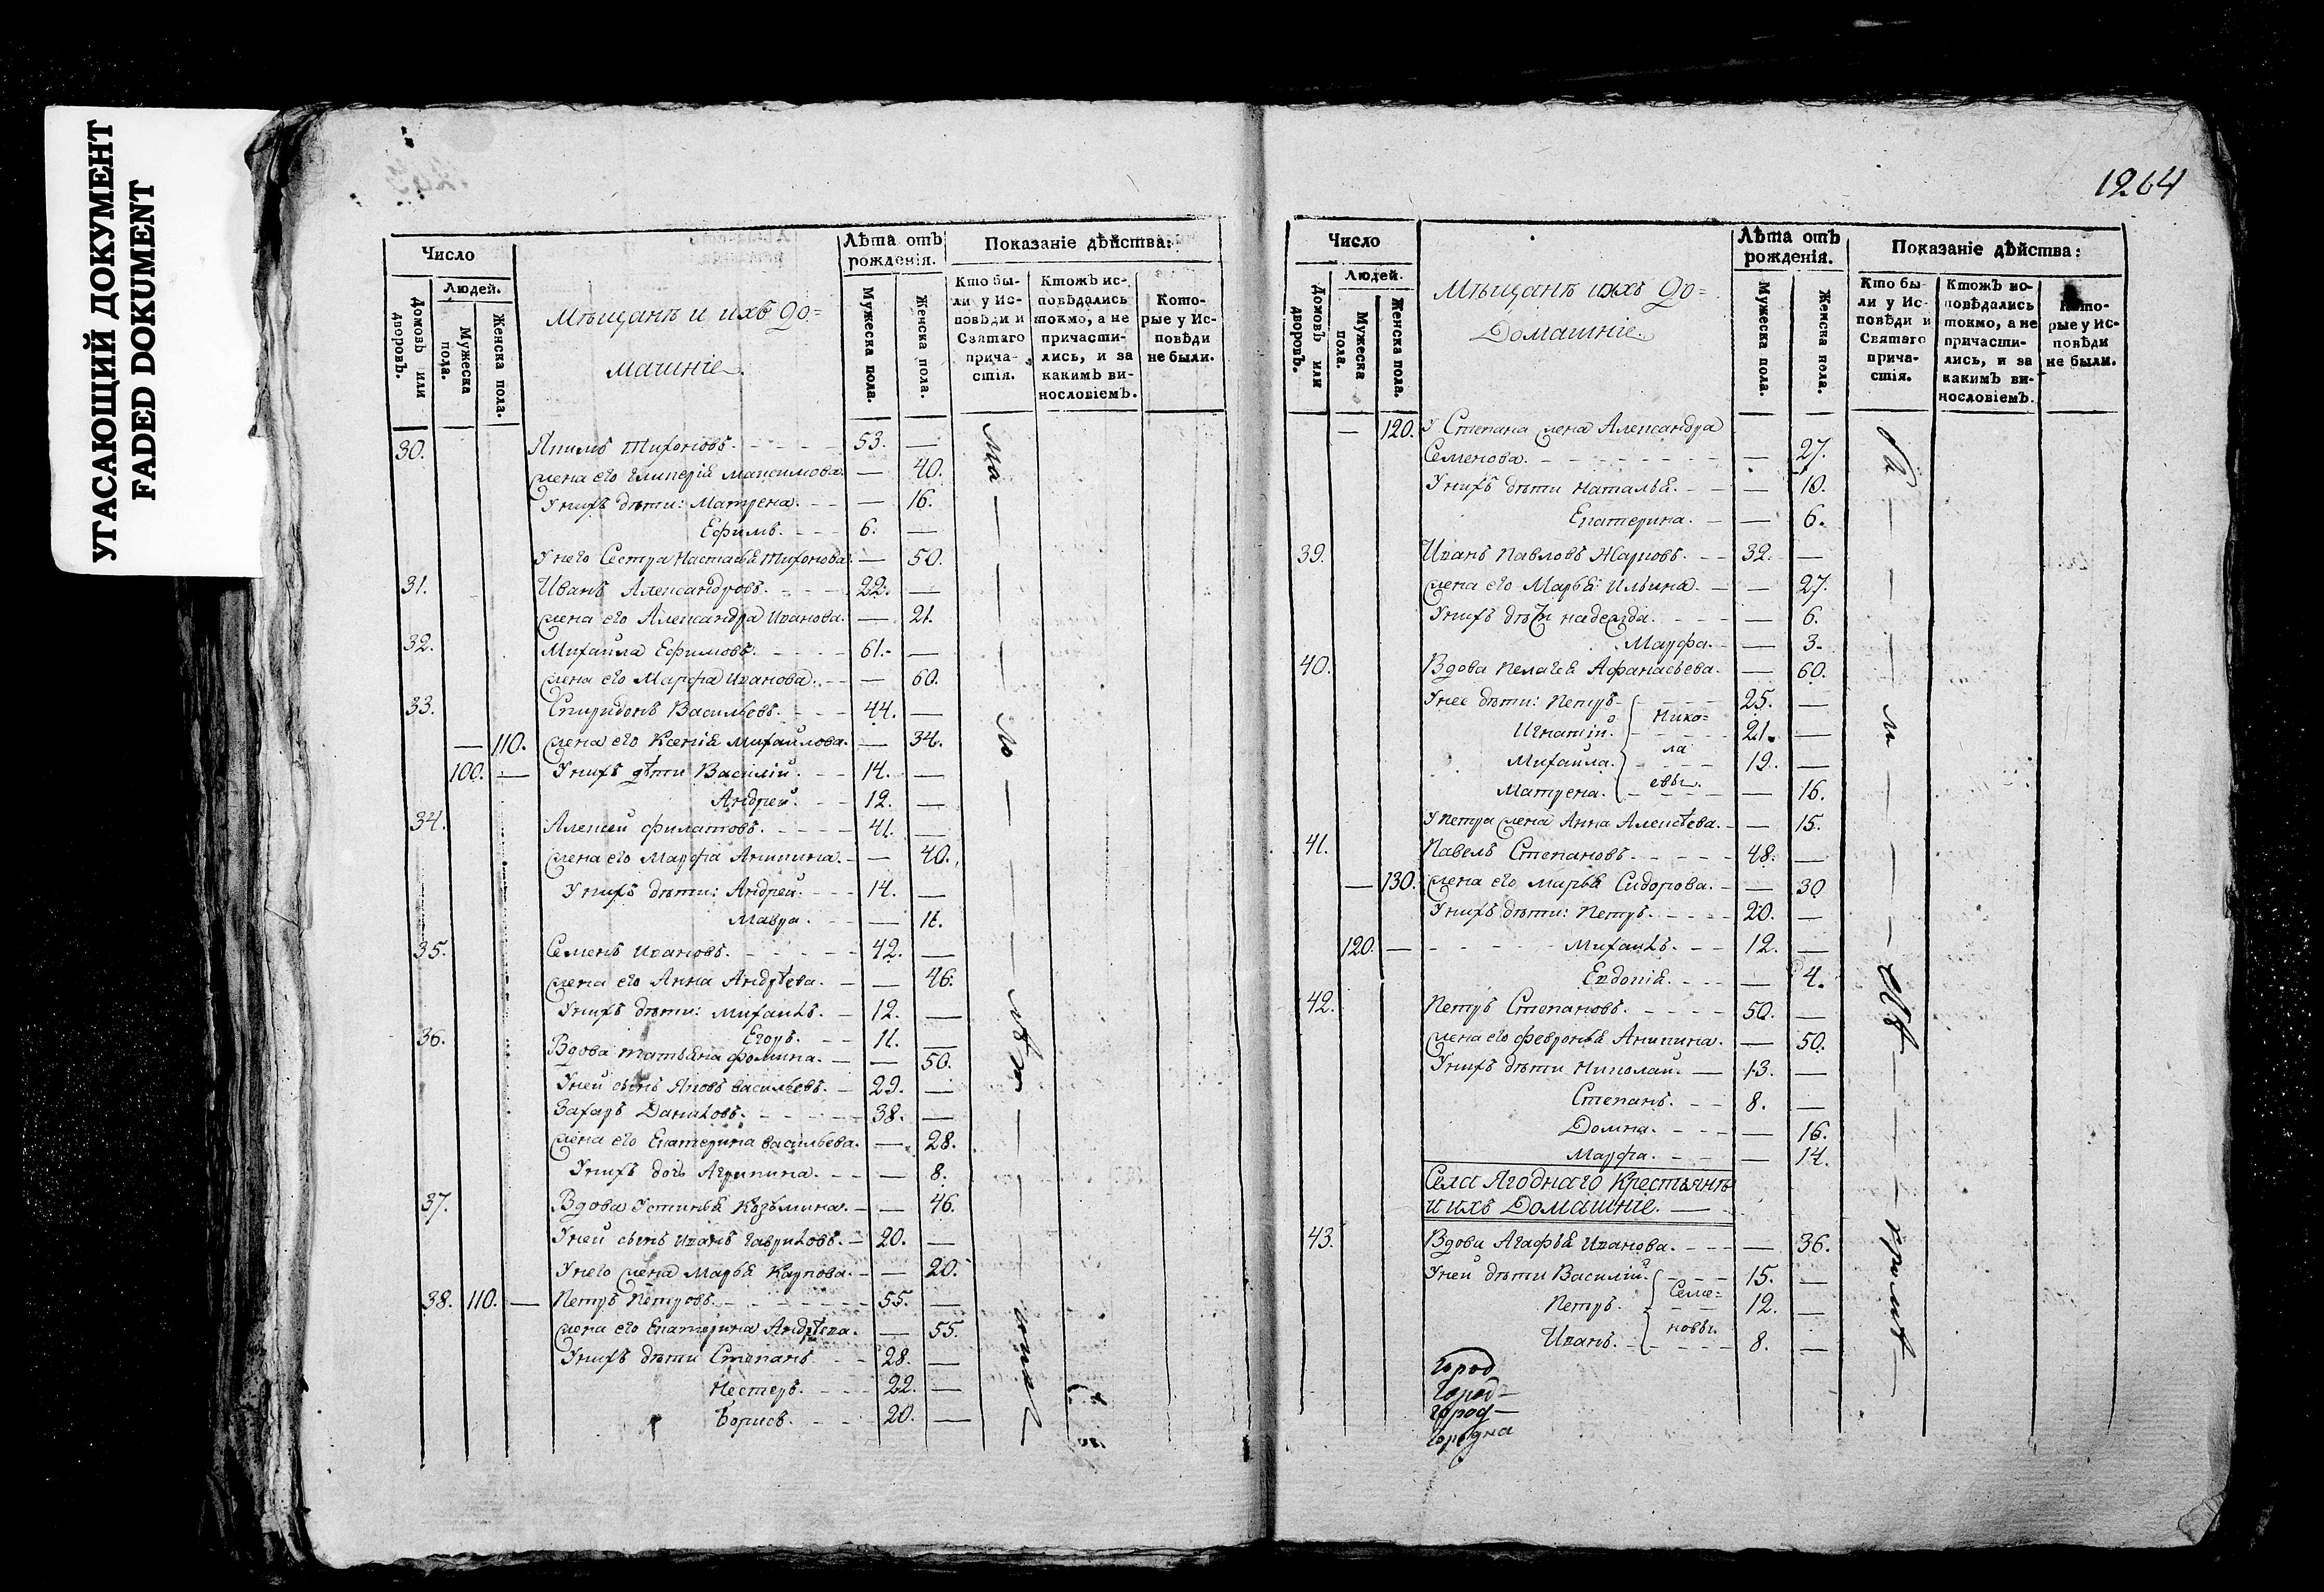 УГАСАЮЩИЙ ДОКУМЕНТ
FADED DOKUMENT
Число
Людей.
Домовъ или дворовъ.
Мужеска пола.
Женска пола.
Мѣщанѣ и ихъ до=
машніе.
Лѣта отъ рожденія.
Мужеска пола.
Женска пола.
Показаніе дѣйства:
Кто бы-
ли у Ис-
повѣди и
Святаго
прича-
стія.
Ктожъ ис-
повѣдались
токмо, а не
причасти-
лись, и за
какимъ ви-
нословіемъ.
Кото-
рые у Ис-
повѣди
не были.
30. Якимъ Тихоновъ. 53. —
жена его Гликерія Максимова. — 40.
У нихъ дѣти: Матрена. — 16.
Ефимъ. 6. —
У него Сестра Настасья Тихонова. — 50.
31. Иванъ Александровъ. 22. —
жена его Александра Иванова. — 21.
32. Михайла Ефимовъ. 61. —
жена его Марфа Иванова. — 60.
33. Спиридонъ Васильевъ. 44. —
— 110. жена его Ксенія Михайлова. — 34.
100. — У нихъ дѣти Василій. 14. —
Андрей. 12. —
34. Алексей Филатовъ. 41. —
жена его Марфа Аникина. — 40.
У нихъ дѣти: Андрей. 14. —
Мавра. — 11.
35. Семенъ Ивановъ. 42. —
жена его Анна Андрѣева. — 46.
У нихъ дѣти: Михаилъ. 12. —
Егоръ. 11. —
36. Вдова Татьяна Фомина. — 50.
У ней сынъ Яковъ Васильевъ. 29. —
Захаръ Даниловъ. 38. —
жена его Екатерина Васильева. — 28.
У нихъ дочь Агрипина. — 8.
37. Вдова Устинья Козьмина. — 46.
У ней сынъ Иванъ Гавриловъ. 20. —
У него жена Марья Карпова. — 20.
38. 110. — Петръ Петровъ. 55. —
жена его Екатерина Андрѣева. — 55.
У нихъ дѣти Степанъ 28. —
Нестеръ. 22. —
Борисъ. 20. —
1264
Число
Людей.
Домовъ или дворовъ.
Мужеска пола.
Женска пола.
Мѣщанѣ ихъ до=
Домашніе.
Лѣта отъ рожденія.
Мужеска пола.
Женска пола.
Показаніе дѣйства:
Кто бы-
ли у Ис-
повѣди и
Святаго
прича-
стія.
Ктожъ ис-
повѣдались
токмо, а не
причасти-
лись, и за
какимъ ви-
нословіемъ.
Кото-
рые у Ис-
повѣди
не были.
— 120. У Степана жена Александра
Семенова. — 27.
У нихъ дѣти Наталья. — 10.
Екатерина. — 6.
39. Иванъ Павловъ Жарковъ. 32. —
жена его Марья Ильина. — 27.
У нихъ дѣти Надежда. — 6.
Марфа. — 3.
40. Вдова Пелагея Афанасьева. — 60.
У нее дѣти: Петръ 25. —
Нико=
Игнатій. 21. —
ла
Михайла. 19. —
евы.
Матрена. — 16.
У Петра жена Анна Алексѣева. — 15.
41. Павелъ Степановъ. 48. —
— 130. жена его Марья Сидорова. — 30
У нихъ дѣти: Петръ. 20. —
120. — Михаилъ. 12. —
Евдокія. — 4.
42. Петръ Степановъ. 50. —
жена его Февронья Аникина. — 50.
У нихъ дѣти Николай. 13. —
Степанъ. 8. —
Домна. — 16.
Марфа. — 14.
Села Ягоднаго Крестьянѣ
и ихъ Домашніе.
43. Вдова Агафья Иванова. — 36.
У ней дѣти Василій. 15. —
Семе=
Петръ. 12. —
новы.
Иванъ. 8. —
Город
Город—
город—
Городна